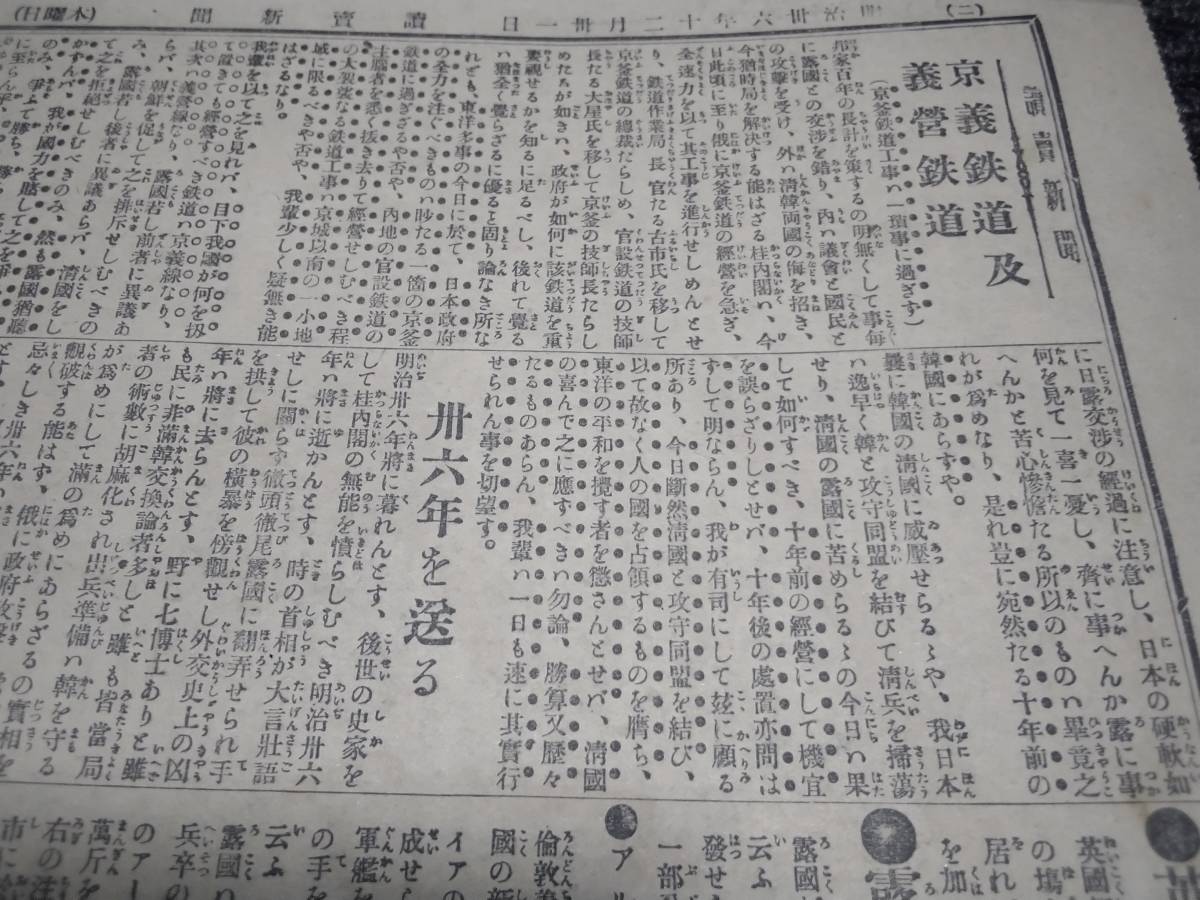 (二)
明治卅六年十二月卅一日
讀賣新聞
(木曜日)
讀賣新聞
京義鉄道及
義營鉄道
(京釜鉄道工事ハ一瑣事に過ぎず)
國家百年の長計を策するの明無くして事毎
に露國との交渉を錯り、内ハ議會と國民と
の攻擊を受け、外ハ清韓兩國の侮を招き、
今猶時局を解決する能はざる桂内閣ハ、今
日此頃に至り俄に京釜鉄道の經營を急ぎ、
全速力を以て其工事を進行せしめんとせ
り、鉄道作業局長官たる古市氏を移して
京釜鉄道の總裁たらしめ、官設鉄道の技師
長たる大屋氏を移して京釜の技師長たらし
めたるが如き、政府が如何に該鉄道を重
要視せるかを知るに足るべし、後れて覺る
ハ猶全く覺らざるに優ると固り論なき所な
れども、東洋多事の今日に於て、日本政府
の全力を注ぐべきもの眇たる一箇の京釜
鉄道に過ぎざるや否や、内地の官設鉄道の
主腦者を悉く拔き去りて經營せしむべき程
の大袈裟なる鉄道工事ハ京城以南の一小地
域に限るべきや否や、我輩少しく疑無き能
はざるなり。
我輩を以て之を見れバ、目下我國が何を扨
て置きても經營すべき鉄道ハ京義線なり、
其次ハ義營線なり、露國若し前者に異議あ
らバ、朝鮮を促して之を排斥せしむべきの
み、露國若し後者に異議あらバ、清國をし
て之を拒絶せしむべきのみ、然も露國猶聽
かずんバ、我が國力を賭して之を爭ふべき
のみ、爭ふて勝ち、
に至らん乎、
に日露交渉の經過に注意し、日本の硬軟如
何を見て一喜一憂し、齊に事へんか露に事
へんかと苦心慘憺たる所以のものハ畢竟之
れが爲めなり、是れ豈に宛然たる十年前の
韓國にあらずや。
曩に韓國の清國に威壓せらるゝや、我日本
ハ逸早く韓と攻守同盟を結びて清兵を掃蕩
せり、清國の露國に苦めらるゝの今日ハ果
して如何すべき、十年前の經營にして機宜
を誤らざりしとせバ、十年後の處置亦問は
ずして明ならん、我が有司にして玆に顧る
所あり、今日斷然清國と攻守同盟を結び、
以て故なく人の國を占領するものを膺ち、
東洋の平和を攪す者を懲さんとせバ、清國
の喜んで之に應すべきハ勿論、勝算又歷々
たるものあらん、我輩ハ一日も速に其實行
せられん事を切望す。
卅六年を送る
明治卅六年將に暮れんとす、後世の史家を
して桂内閣の無能を憤らしむべき明治卅六
年ハ將に逝かんとす、時の首相が大言壯語
せしに關らず徹頭徹尾露國に翻弄せられ手
を拱して彼の橫暴を傍觀せし外交史上の凶
年ハ將に去らんとす、野に七博士ありと雖
も民に非滿韓交換論者多しと雖も皆當局
者の術數に胡麻化され出兵準備ハ韓を守る
が爲めにして滿の爲めにあらざるの實相を
觀破する能はず、俄に政府攻擊
忌々しき卅六年ハ
英國
の塲
居れ
を加
露國
云ふ
發せ
一部
●ア
倫敦
國の新
イアの
成せら
軍艦を
の手を
云ふ
露國ハ
兵卒の
のアー
萬斤を
右の注
市に